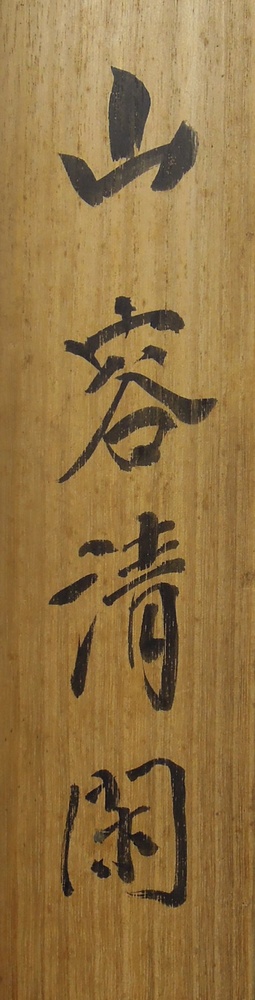 山容清閑